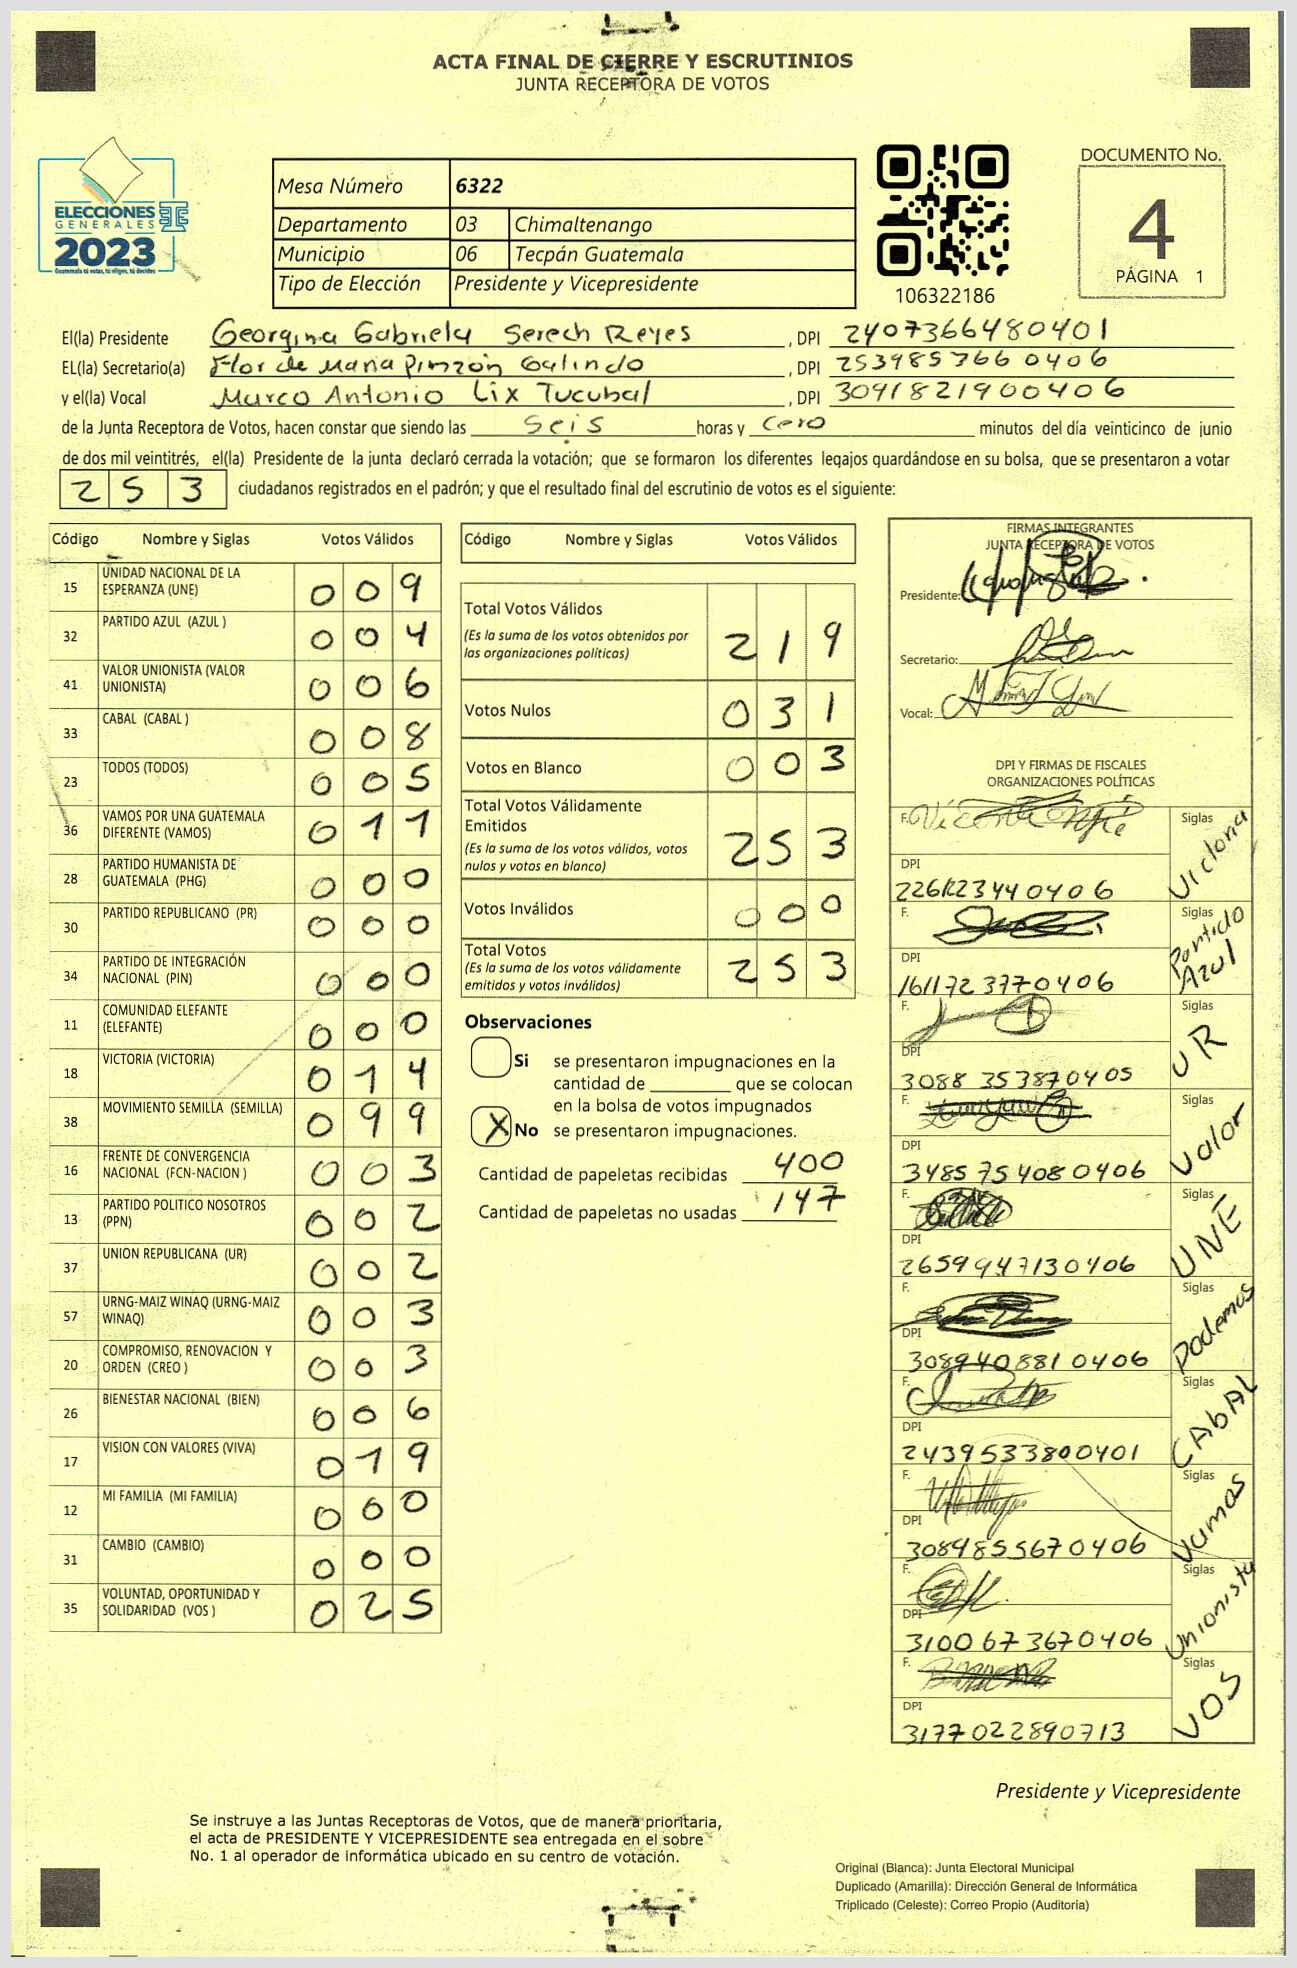 ACTA FINAL DE CIERRE Y ESCRUTINIOS
JUNTA RECEPTORA DE VOTOS
ELECCIONES
GENERALES
2023
Guatemala tú votas, tú eliges, tú decides
Mesa Número 6322
Departamento 03 Chimaltenango
Municipio 06 Tecpán Guatemala
Tipo de Elección Presidente y Vicepresidente
106322186
DOCUMENTO No.
4
PÁGINA 1
El(la) Presidente Georgina Gabriela Serech Reyes, DPI 2407366480401
EL(la) Secretario(a) Flor de Maria Pinzón Galindo, DPI 2539857660406
y el(la) Vocal Marco Antonio Lix Tucubal, DPI 3091821900406
de la Junta Receptora de Votos, hacen constar que siendo las seis horas y cero minutos del día veinticinco de junio
de dos mil veintitrés, el(la) Presidente de la junta declaró cerrada la votación; que se formaron los diferentes legajos guardándose en su bolsa, que se presentaron a votar
253 ciudadanos registrados en el padrón; y que el resultado final del escrutinio de votos es el siguiente:
Código Nombre y Siglas Votos Válidos
15 UNIDAD NACIONAL DE LA ESPERANZA (UNE) 009
32 PARTIDO AZUL (AZUL ) 004
41 VALOR UNIONISTA (VALOR UNIONISTA) 006
33 CABAL (CABAL ) 008
23 TODOS (TODOS) 005
36 VAMOS POR UNA GUATEMALA DIFERENTE (VAMOS) 011
28 PARTIDO HUMANISTA DE GUATEMALA (PHG) 000
30 PARTIDO REPUBLICANO (PR) 000
34 PARTIDO DE INTEGRACIÓN NACIONAL (PIN) 000
11 COMUNIDAD ELEFANTE (ELEFANTE) 000
18 VICTORIA (VICTORIA) 014
38 MOVIMIENTO SEMILLA (SEMILLA) 099
16 FRENTE DE CONVERGENCIA NACIONAL (FCN-NACION ) 003
13 PARTIDO POLITICO NOSOTROS (PPN) 002
37 UNION REPUBLICANA (UR) 002
57 URNG-MAIZ WINAQ (URNG-MAIZ WINAQ) 003
20 COMPROMISO, RENOVACION Y ORDEN (CREO ) 003
26 BIENESTAR NACIONAL (BIEN) 006
17 VISION CON VALORES (VIVA) 019
12 MI FAMILIA (MI FAMILIA) 000
31 CAMBIO (CAMBIO) 000
35 VOLUNTAD, OPORTUNIDAD Y SOLIDARIDAD (VOS ) 025
Código Nombre y Siglas Votos Válidos
Total Votos Válidos 219
(Es la suma de los votos obtenidos por
las organizaciones políticas)
Votos Nulos 031
Votos en Blanco 003
Total Votos Válidamente
Emitidos 253
(Es la suma de los votos válidos, votos
nulos y votos en blanco)
Votos Inválidos 000
Total Votos 253
(Es la suma de los votos válidamente
emitidos y votos inválidos)
Observaciones
Si se presentaron impugnaciones en la
cantidad de ________ que se colocan
en la bolsa de votos impugnados
X No se presentaron impugnaciones.
Cantidad de papeletas recibidas 400
Cantidad de papeletas no usadas 147
FIRMAS INTEGRANTES
JUNTA RECEPTORA DE VOTOS
Presidente:
Secretario:
Vocal:
DPI Y FIRMAS DE FISCALES
ORGANIZACIONES POLÍTICAS
F. Siglas Victoria
DPI
F. Siglas Partido Azul
DPI 1611723770406
F. Siglas UR
DPI 3088353870405
F. Siglas Valor
DPI 3485754080406
F. Siglas UNE
DPI 2659947130406
F. Siglas Podemos
DPI 3089408810406
F. Siglas CAbAL
DPI 2439533800401
F. Siglas Vamos
DPI 3089855670406
F. Siglas Unionista
DPI 3100673670406
F. Siglas VOS
DPI 3177022890713
Presidente y Vicepresidente
Se instruye a las Juntas Receptoras de Votos, que de manera prioritaria,
el acta de PRESIDENTE Y VICEPRESIDENTE sea entregada en el sobre
No. 1 al operador de informática ubicado en su centro de votación.
Original (Blanca): Junta Electoral Municipal
Duplicado (Amarilla): Dirección General de Informática
Triplicado (Celeste): Correo Propio (Auditoría)